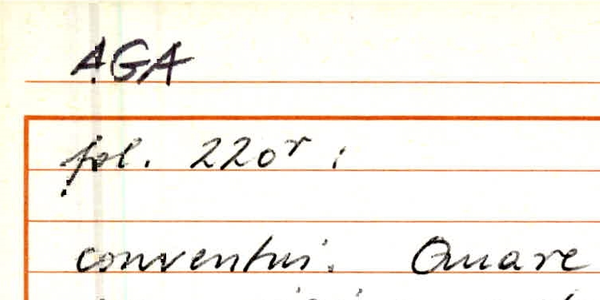 AGA
fol. 220r :
conventui. Quare